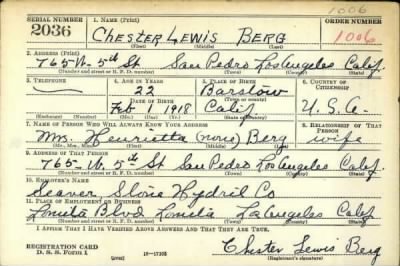 1006
SERIAL NUMBER 1. NAME (Print) ORDER NUMBER
2036 CHESTER LEWIS BERG 1006
(First) (Middle) (Last)
2. ADDRESS (Print)
765 W. 5th St San Pedro Los Angeles Calif.
(Number and street or R. F. D. number) (Town) (County) (State)
3. TELEPHONE 4. AGE IN YEARS 5. PLACE OF BIRTH 6. COUNTRY OF CITIZENSHIP
22 Barstow
DATE OF BIRTH (Town or county)
Feb 1 1918 Calif U.S.A.
(Exchange) (Number) (Mo.) (Day) (Yr.) (State or country)
7. NAME OF PERSON WHO WILL ALWAYS KNOW YOUR ADDRESS 8. RELATIONSHIP OF THAT PERSON
Mrs. Henrietta (none) Berg wife
(Mr., Mrs., Miss) (First) (Middle) (Last)
9. ADDRESS OF THAT PERSON
765 W. 5th St San Pedro Los Angeles Calif.
(Number and street or R. F. D. number) (Town) (County) (State)
10. EMPLOYER'S NAME
Hydril Co
11. PLACE OF EMPLOYMENT OR BUSINESS
Lomita Blvd Lomita Los Angeles Calif
(Number and street or R. F. D. number) (Town) (County) (State)
I AFFIRM THAT I HAVE VERIFIED ABOVE ANSWERS AND THAT THEY ARE TRUE.
REGISTRATION CARD
D. S. S. Form 1 (over) Chester Lewis Berg
(Registrant's signature)